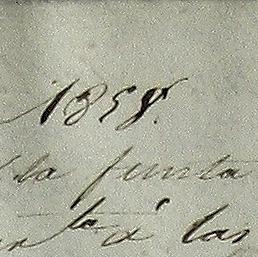 1858.
la junta
to á las